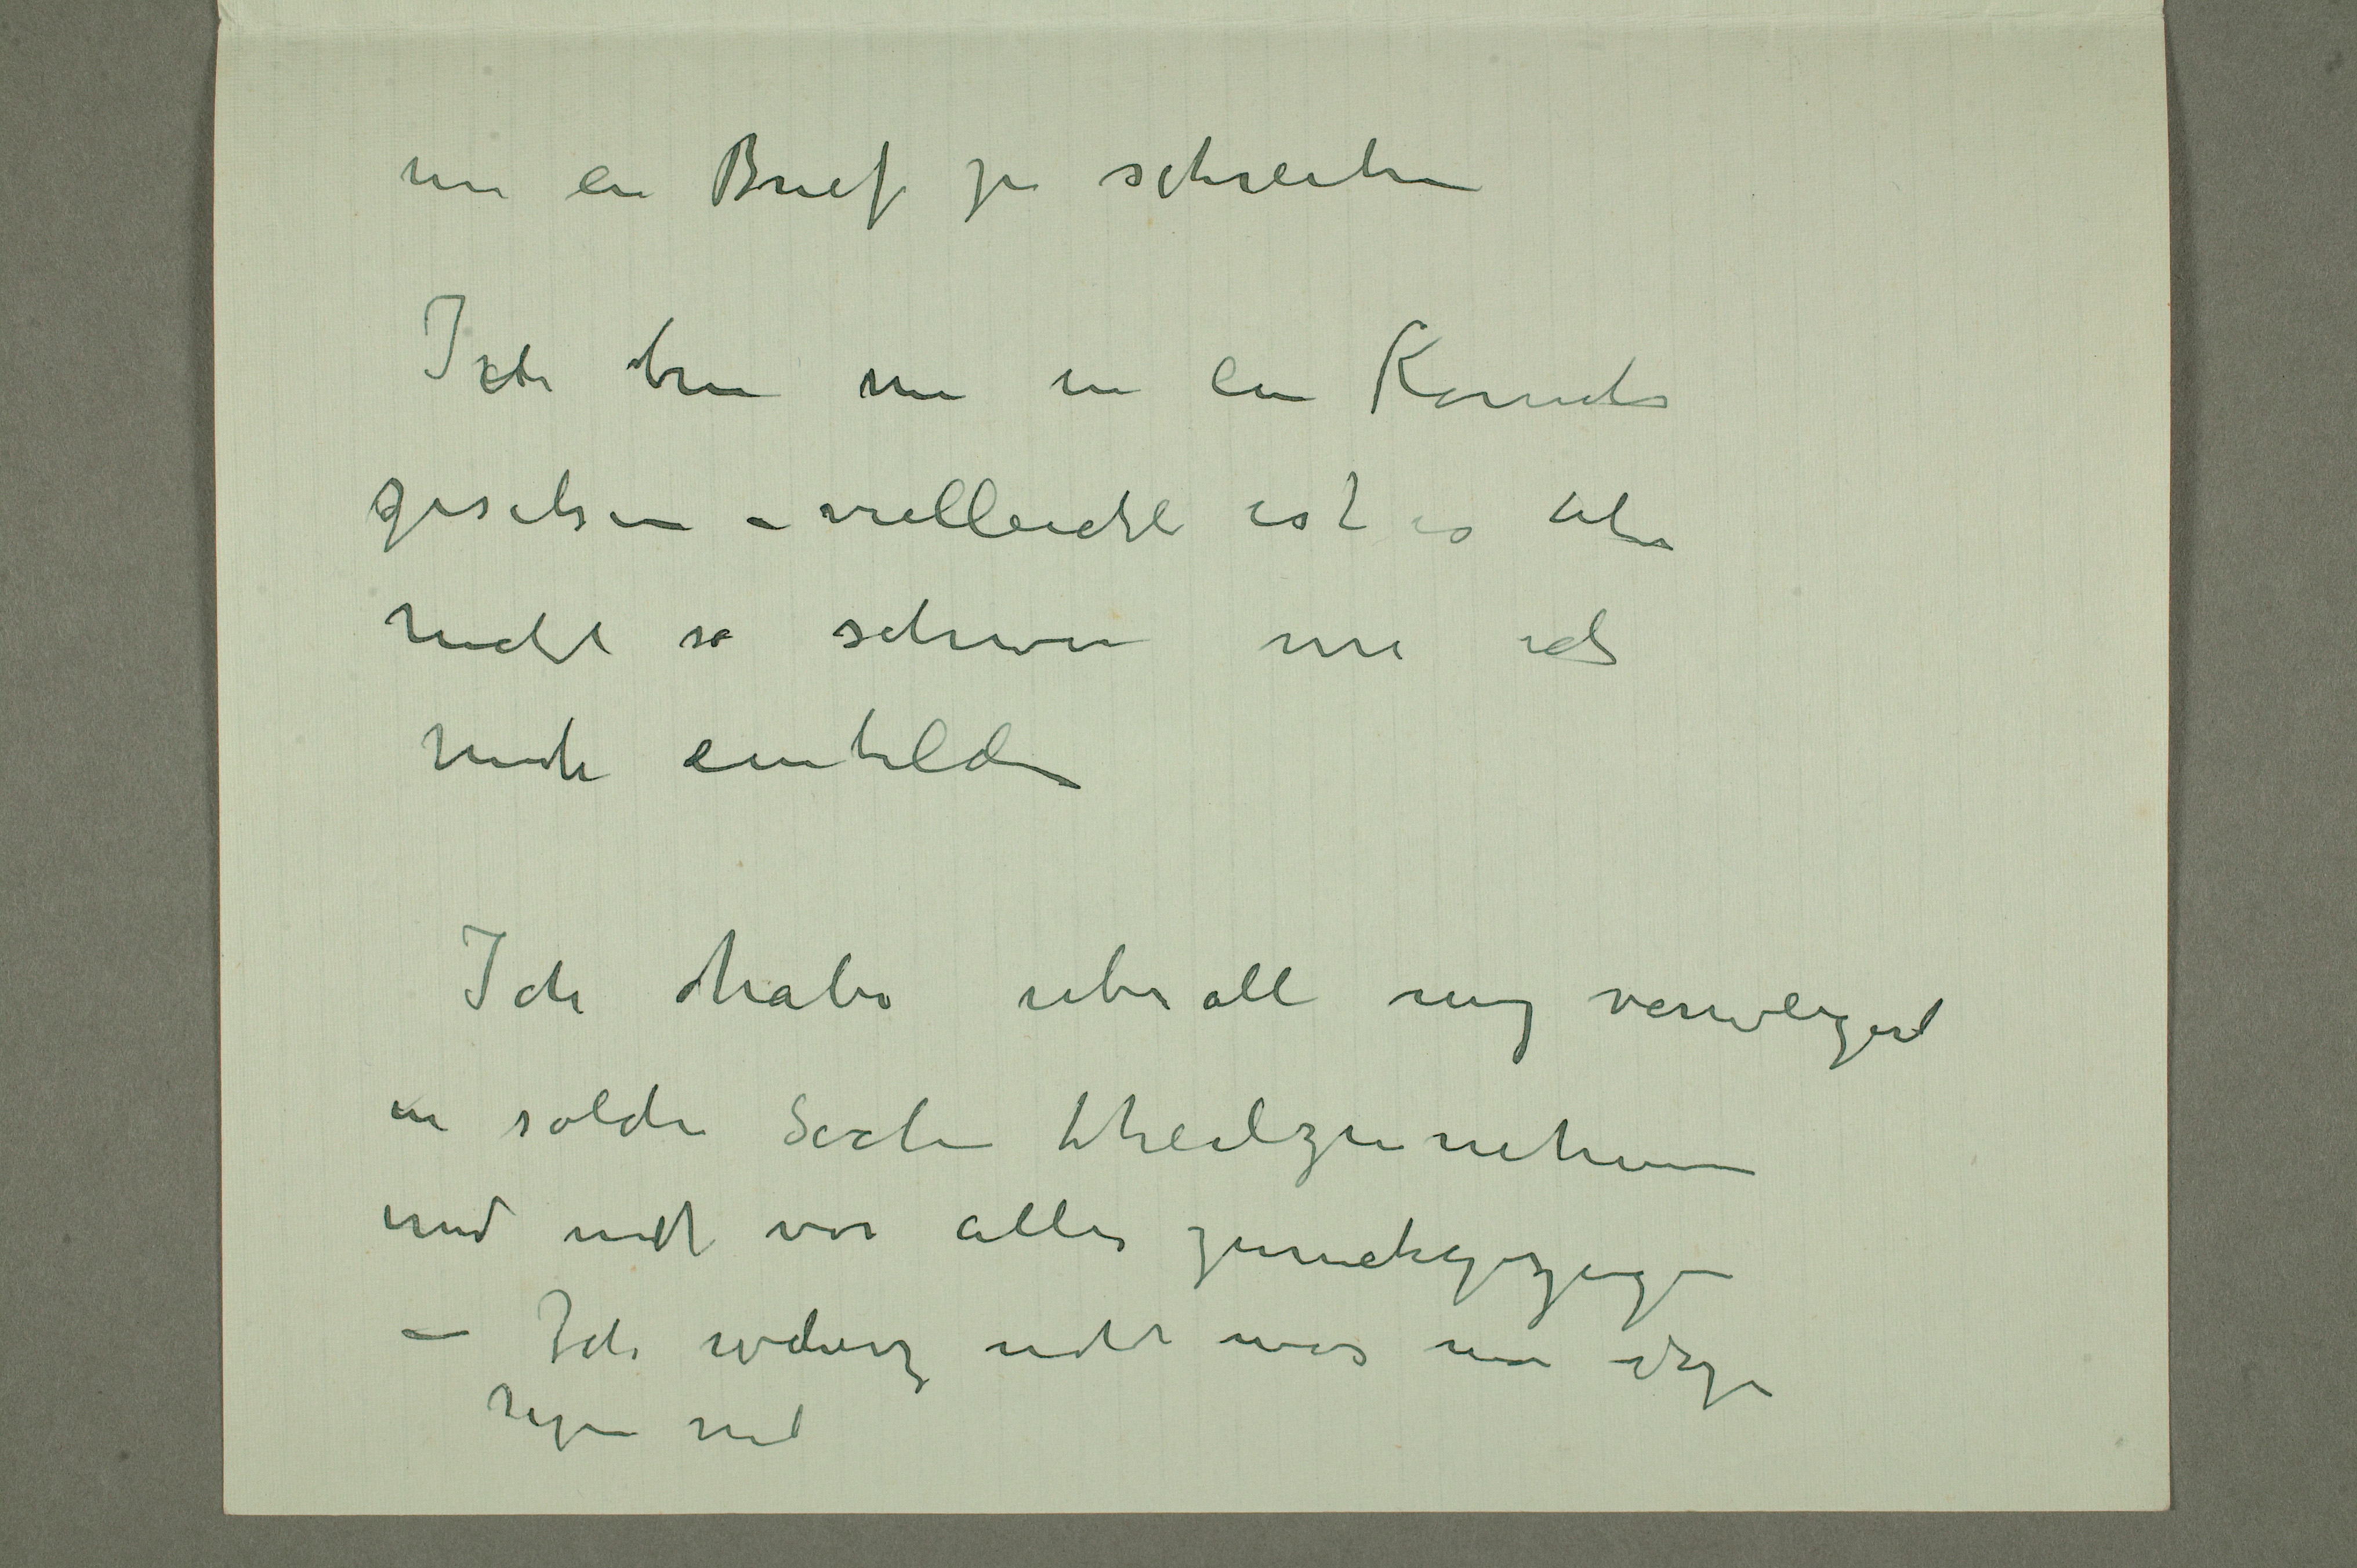 um ein Brief zu schreiben
Ich bin nur in ein Komité
gesehen – vielleicht ist es aber
nicht so schwer wie ich
mich einbilde
Ich habe uberall mig verweigert
in solche Sachen theilzunehmen
und mich vor alles zuruckgezogen
– Ich weis nicht was man